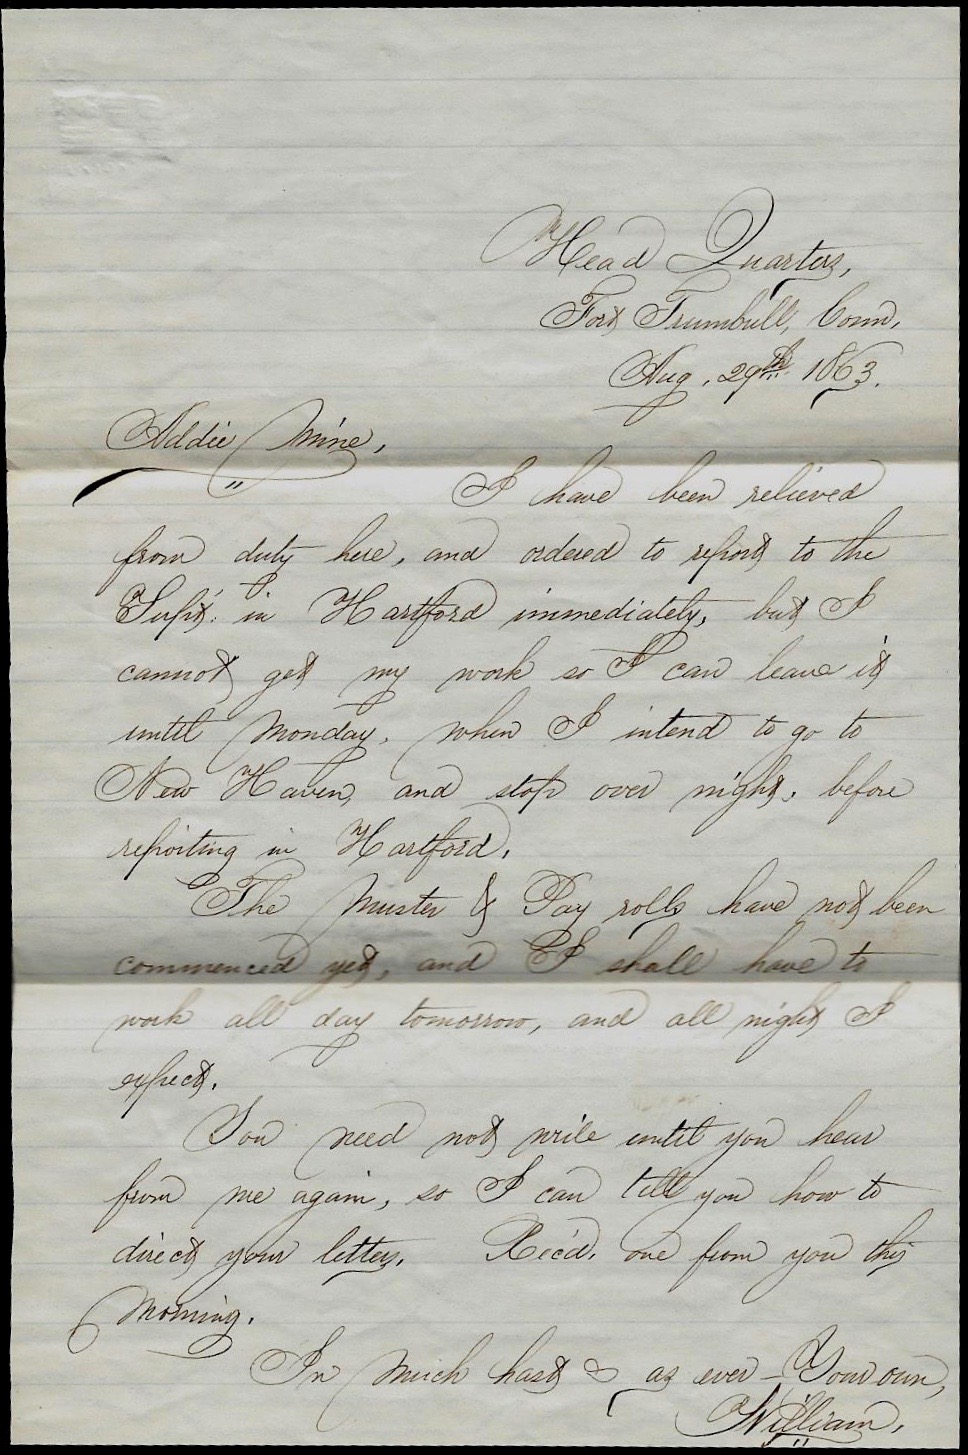 Head Quarters,
Fort Trumbull, Conn,
Aug. 29th 1863.
Addie Mine,
I have been relieved
from duty here, and ordered to report to the
Supt. in Hartford immediately, but I
cannot get my work so I can leave it
until Monday, when I intend to go to
New Haven, and stop over night, before
reporting in Hartford.
The Muster & Pay rolls have not been
commenced yet, and I shall have to
work all day tomorrow, and all night I
expect.
You need not write until you hear
from me again, so I can tell you how to
direct your letters. Rec'd. one from you this
Morning.
In Much hast & as ever - Your own,
William.